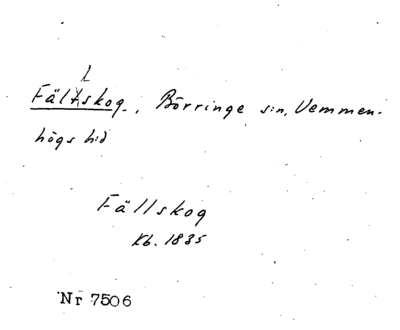 l
Fältskog, Börringe s:n, Vemmen-
högs hd
Fällskog
Kb. 1835
Nr 7506